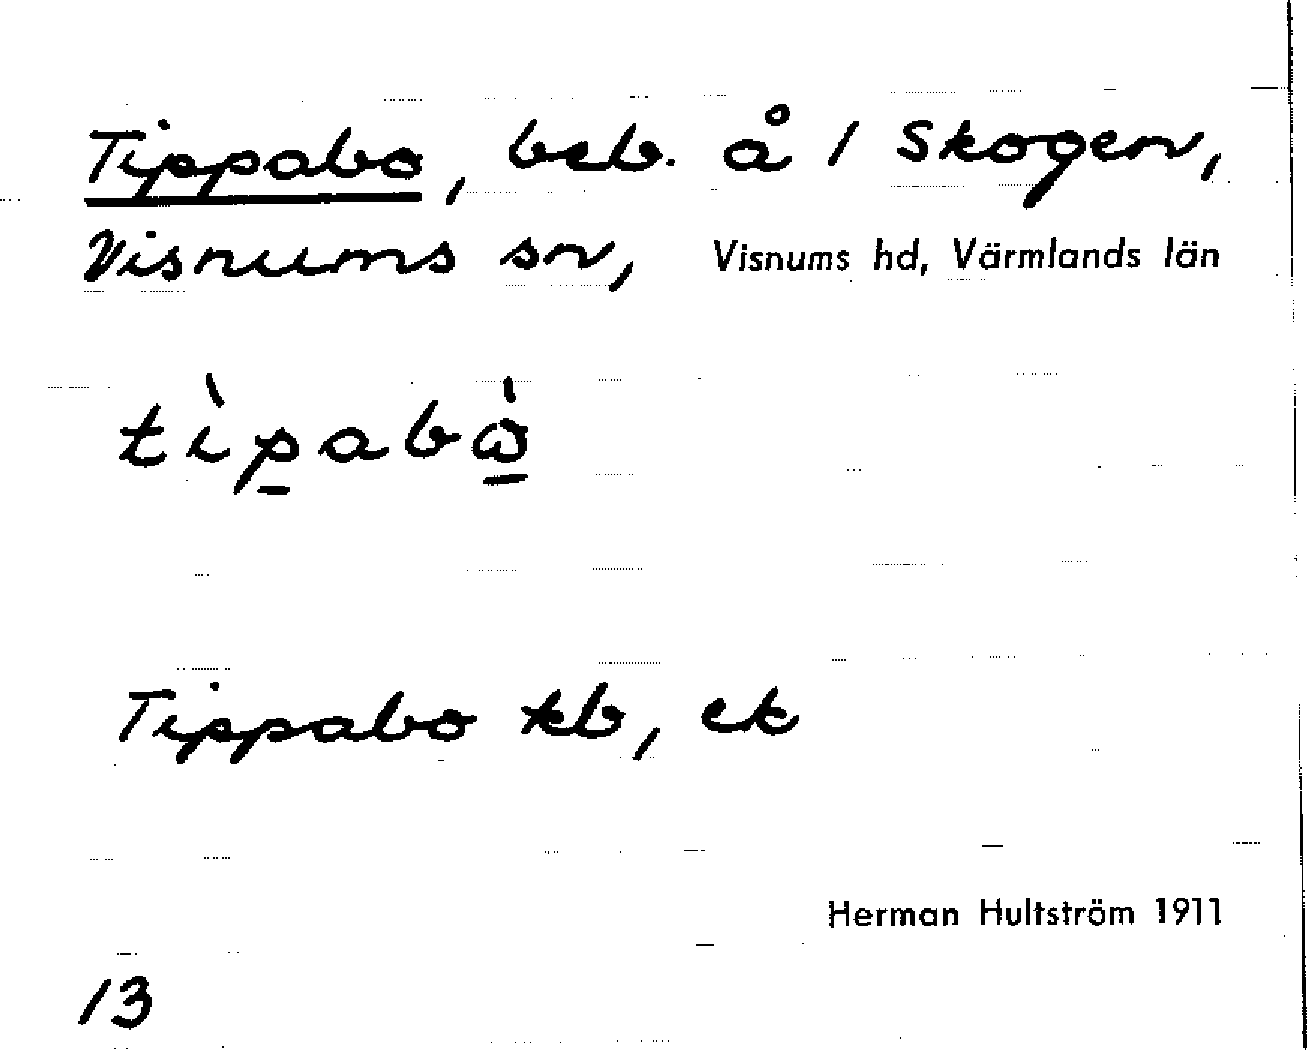 Tippabo, beb. å 1 Skogen,
Visnums sn, Visnums hd, Värmlands län
tìpabò̱
Tippabo kb, ek
Herman Hultström 1911
13